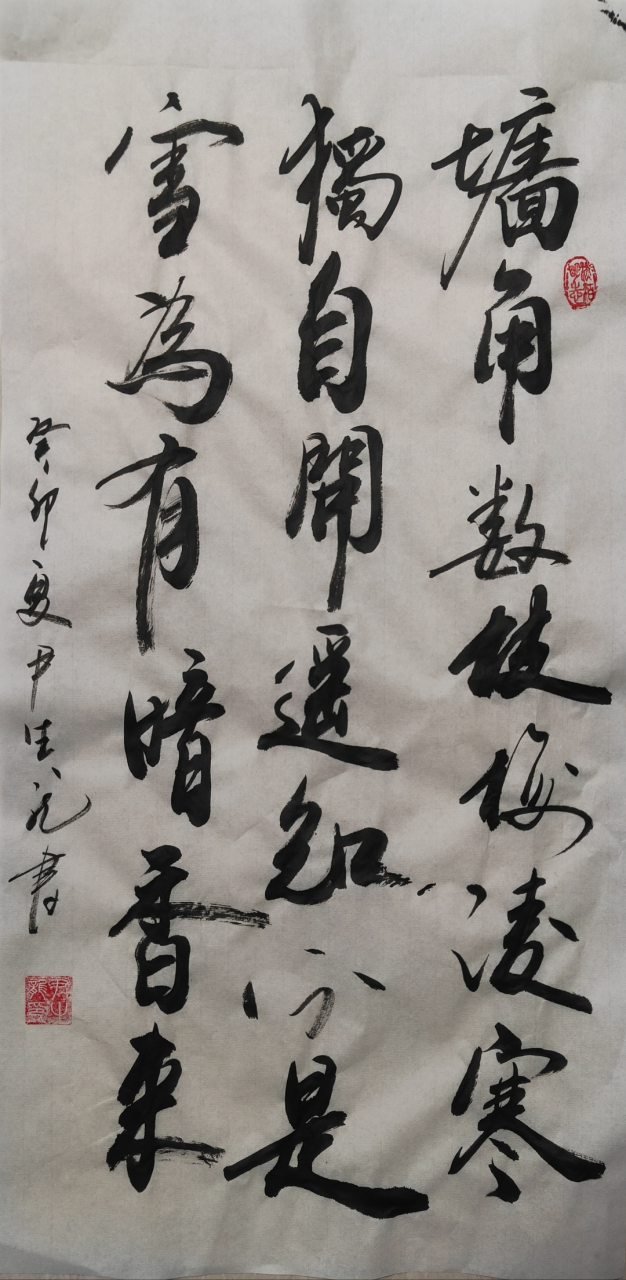 墻角数枝梅凌寒
獨自開遥知不是
雪為有暗香来
癸卯夏尹生龙書